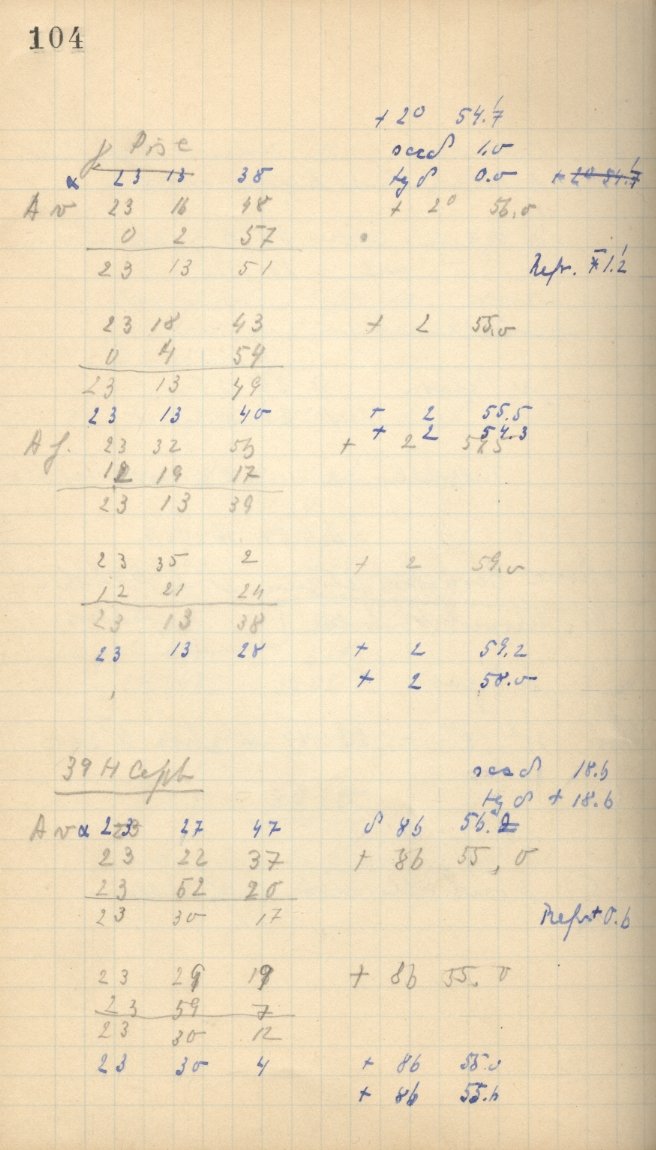 104
+ 2° 54.7
γ Pisc sec δ 1.0
α 23 13 38 tg δ 0.0
A v 23 16 48 + 2° 56.0
0 2 57
23 13 51 Refr. 1.2
23 18 43 + 2 55.0
0 4 54
23 13 49
23 13 40 + 2 55.5
+ 2 54.3
A f. 23 32 56 + 2
12 19 17
23 13 39
23 35 2 + 2 59.0
12 21 24
23 13 38
23 13 28 + 2 59.2
+ 2 58.0
39 H Ceph sec δ 18.6
tg δ + 18.6
A v α 23 27 47 δ 86 56.2
23 22 37 + 86 55,0
23 52 20
23 30 17 Refr + 0.6
23 29 19 + 86 55.0
23 59 7
23 30 12
23 30 4 + 86 55.0
+ 86 55.6